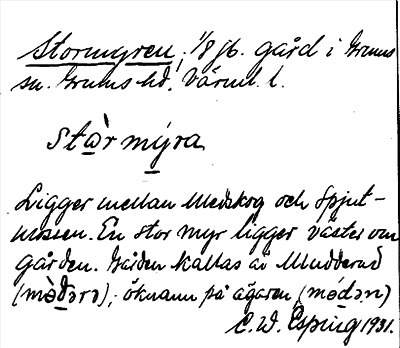 Stormyren, 1/8 jb. gård i Grums
sn. Grums hd. Värml. l.
Ligger mellan Medskog och Spjut-
mossen. En stor myr ligger väster om
gården. Gården kallas av Mudderad
öknamn på ägaren
C. W. Esping 1931.